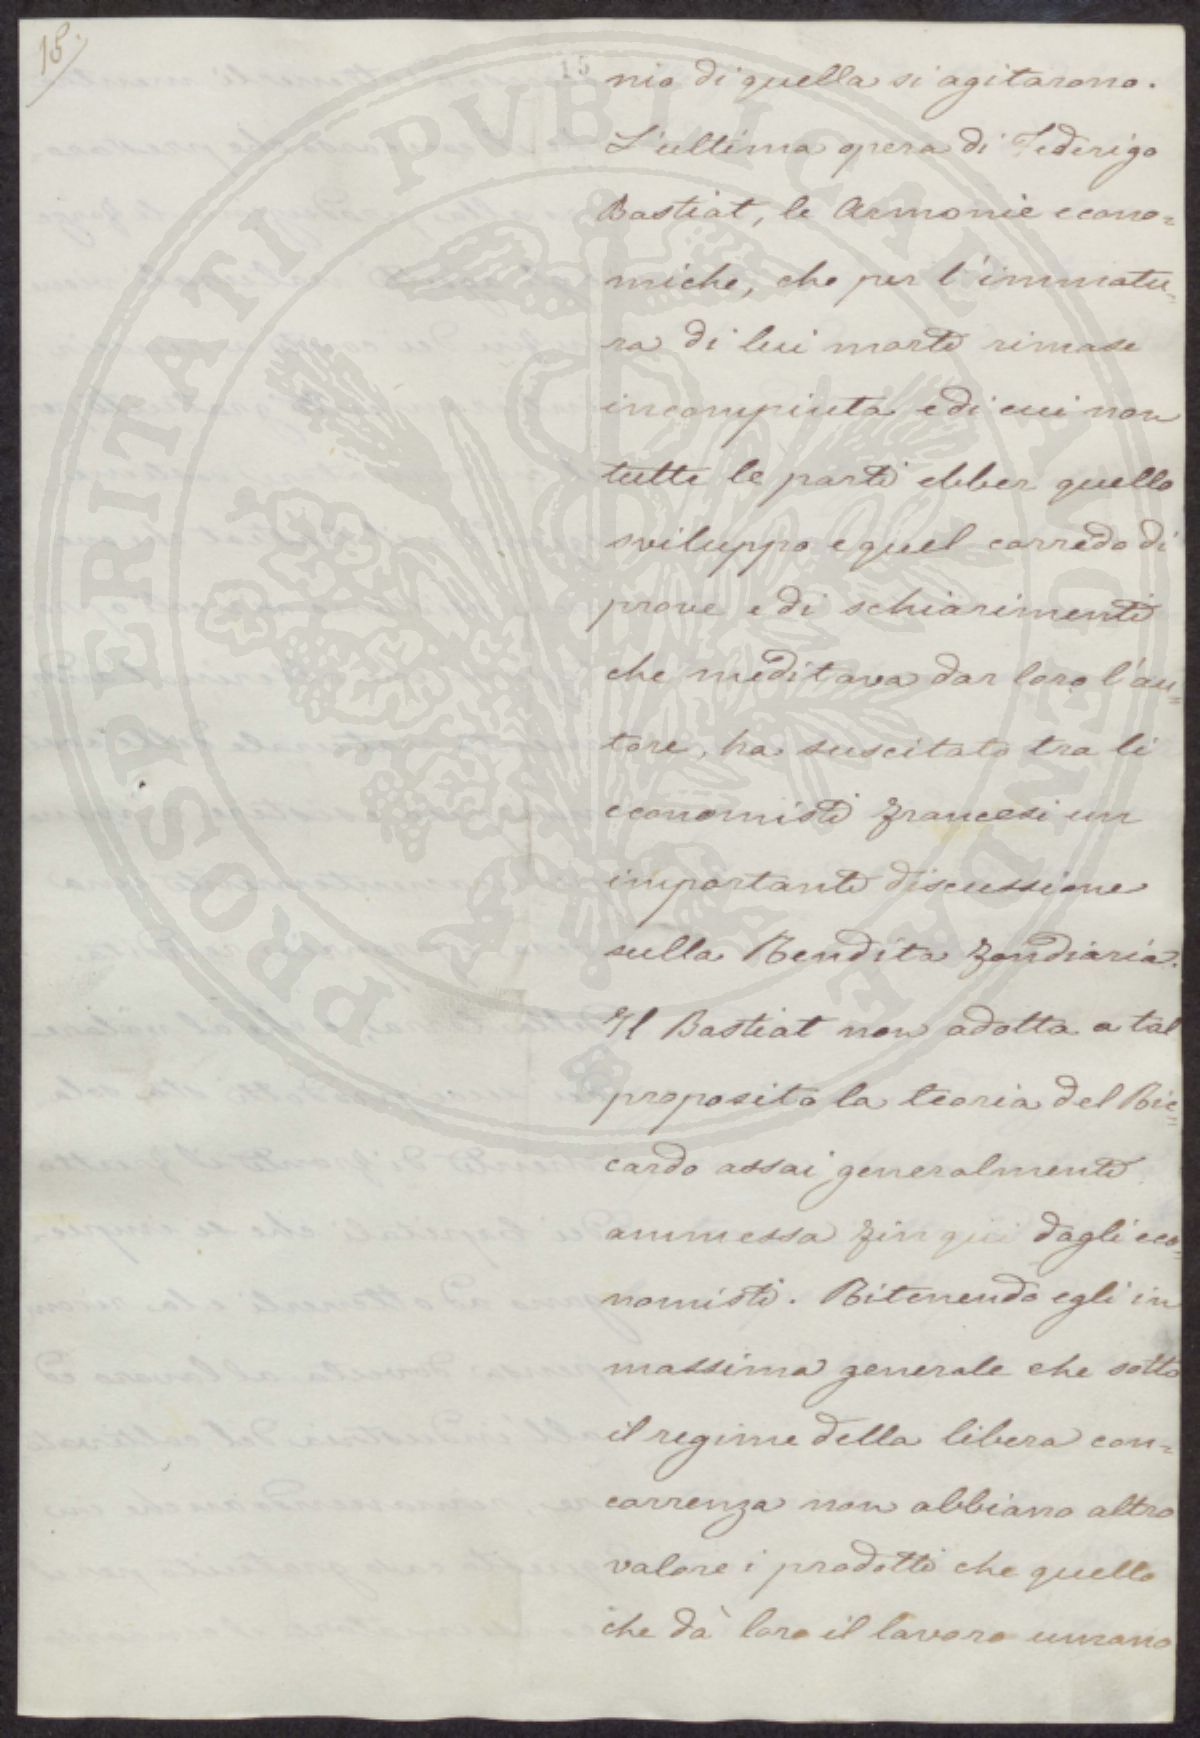 15.
15
nio di quella si agitarono.
L'ultima opera di Federigo
Bastiat, le Armonie econo=
miche, che per l'immatu=
ra di lui morte rimase
incompiuta e di cui non
tutte le parti ebber quello
sviluppo e quel corredo di
prove e di schiarimenti
che meditava dar loro l'au=
tore, ha suscitato tra li
economisti francesi un
importante discussione
sulla Rendita fondiaria.
Il Bastiat non adotta a tal
proposito la teoria del Ric=
cardo assai generalmente
ammessa fin qui dagli eco=
nomisti. Ritenendo egli in
massima generale che sotto
il regime della libera con=
correnza non abbiano altro
valore i prodotti che quello
che dà loro il lavoro umano
PROSPERITATI PVBLICAE AVGENDAE